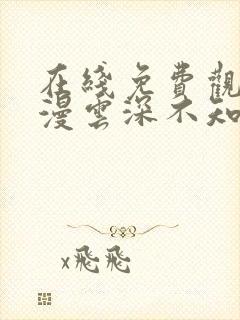 在綫免費觀
漫雲深不知
x飛飛